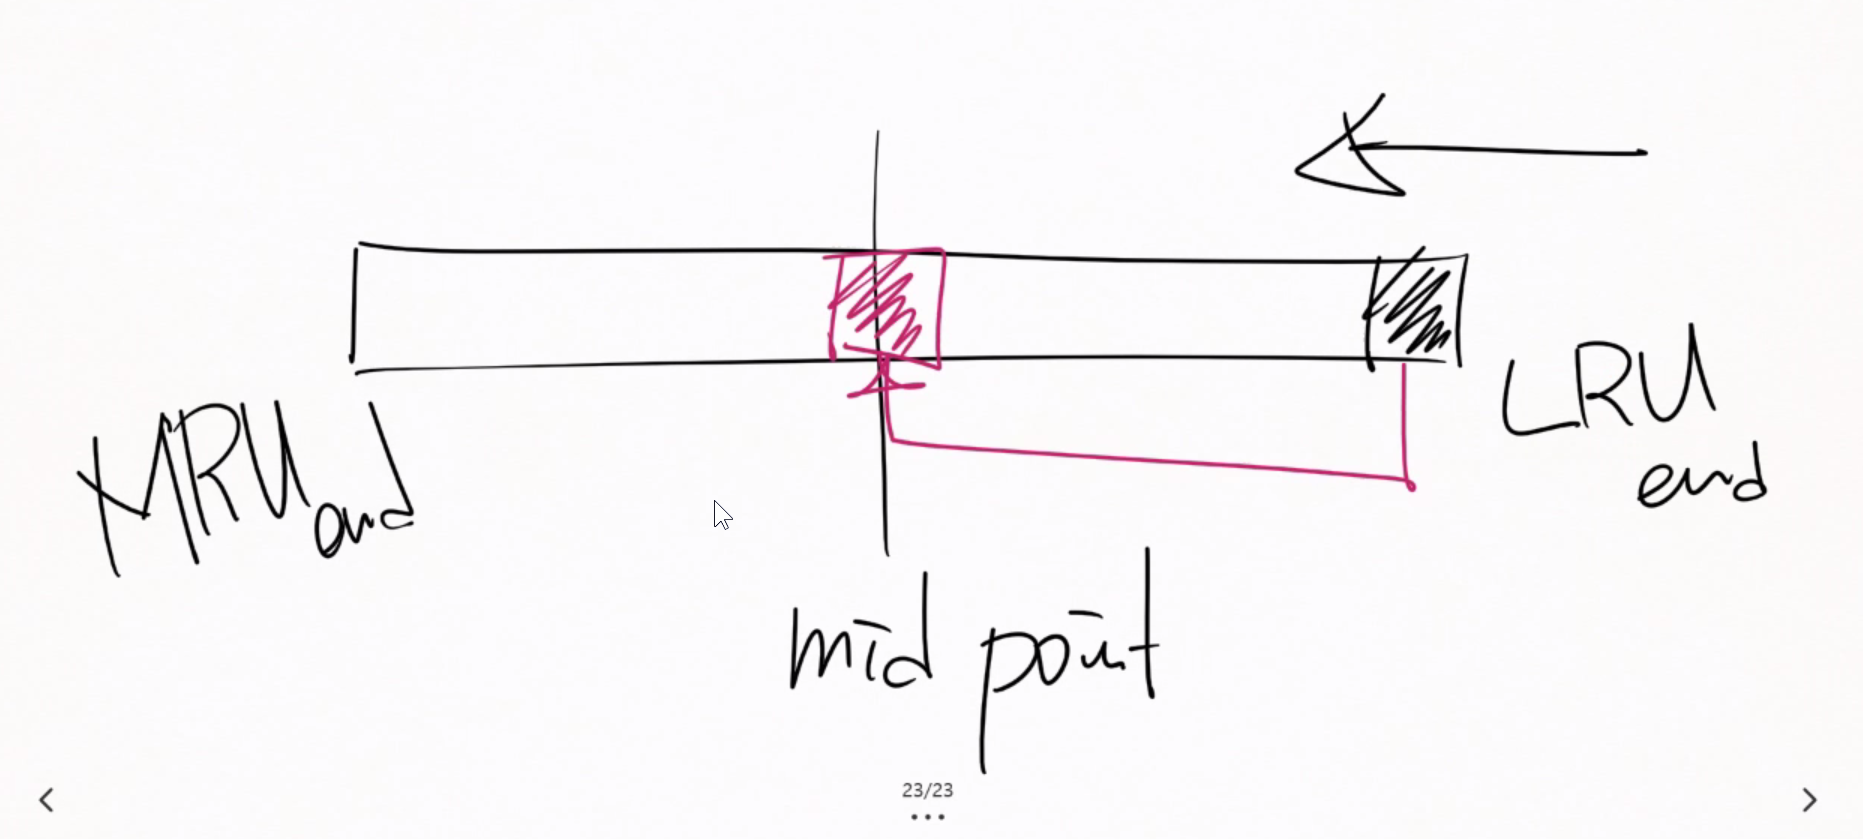 MRU end
LRU
end
mid point
23/23